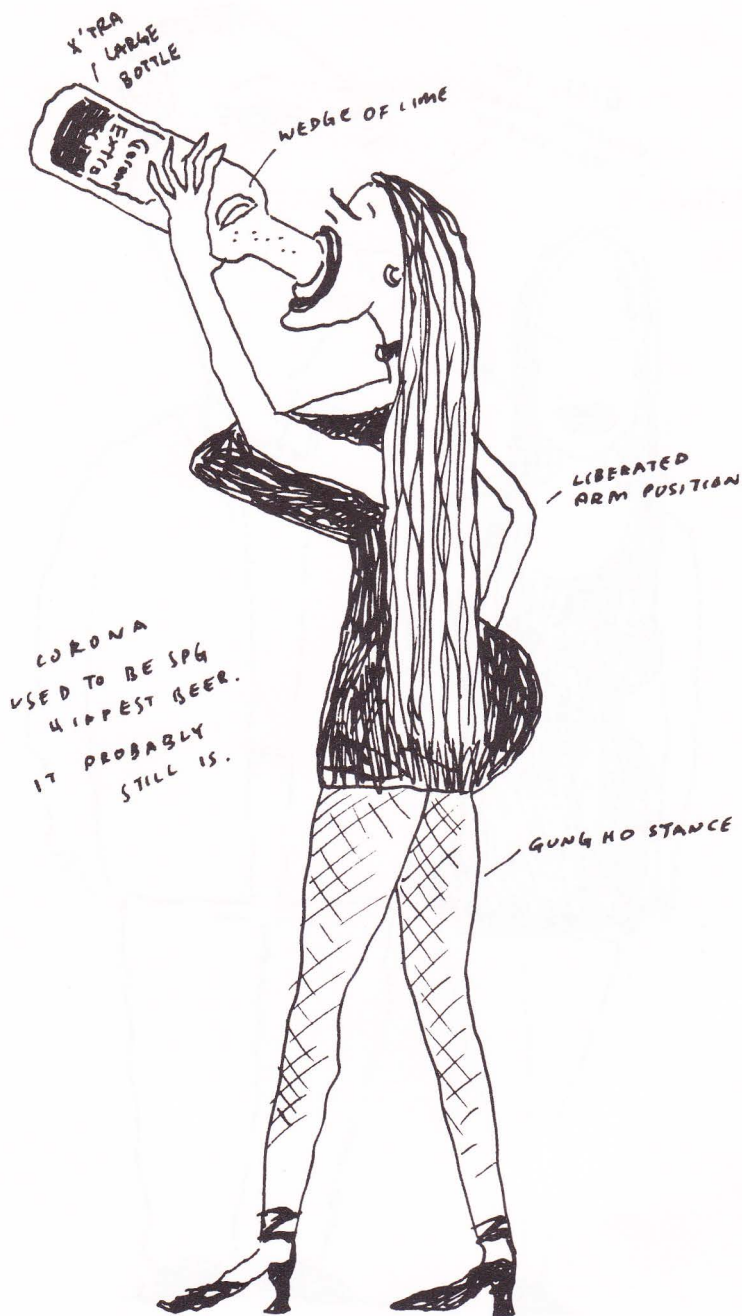 X'TRA
LARGE
BOTTLE
WEDGE OF LIME
Corona
Extra
LIBERATED
ARM POSITION
CORONA
USED TO BE SPG
HIPPEST BEER.
IT PROBABLY
STILL IS.
GUNG HO STANCE